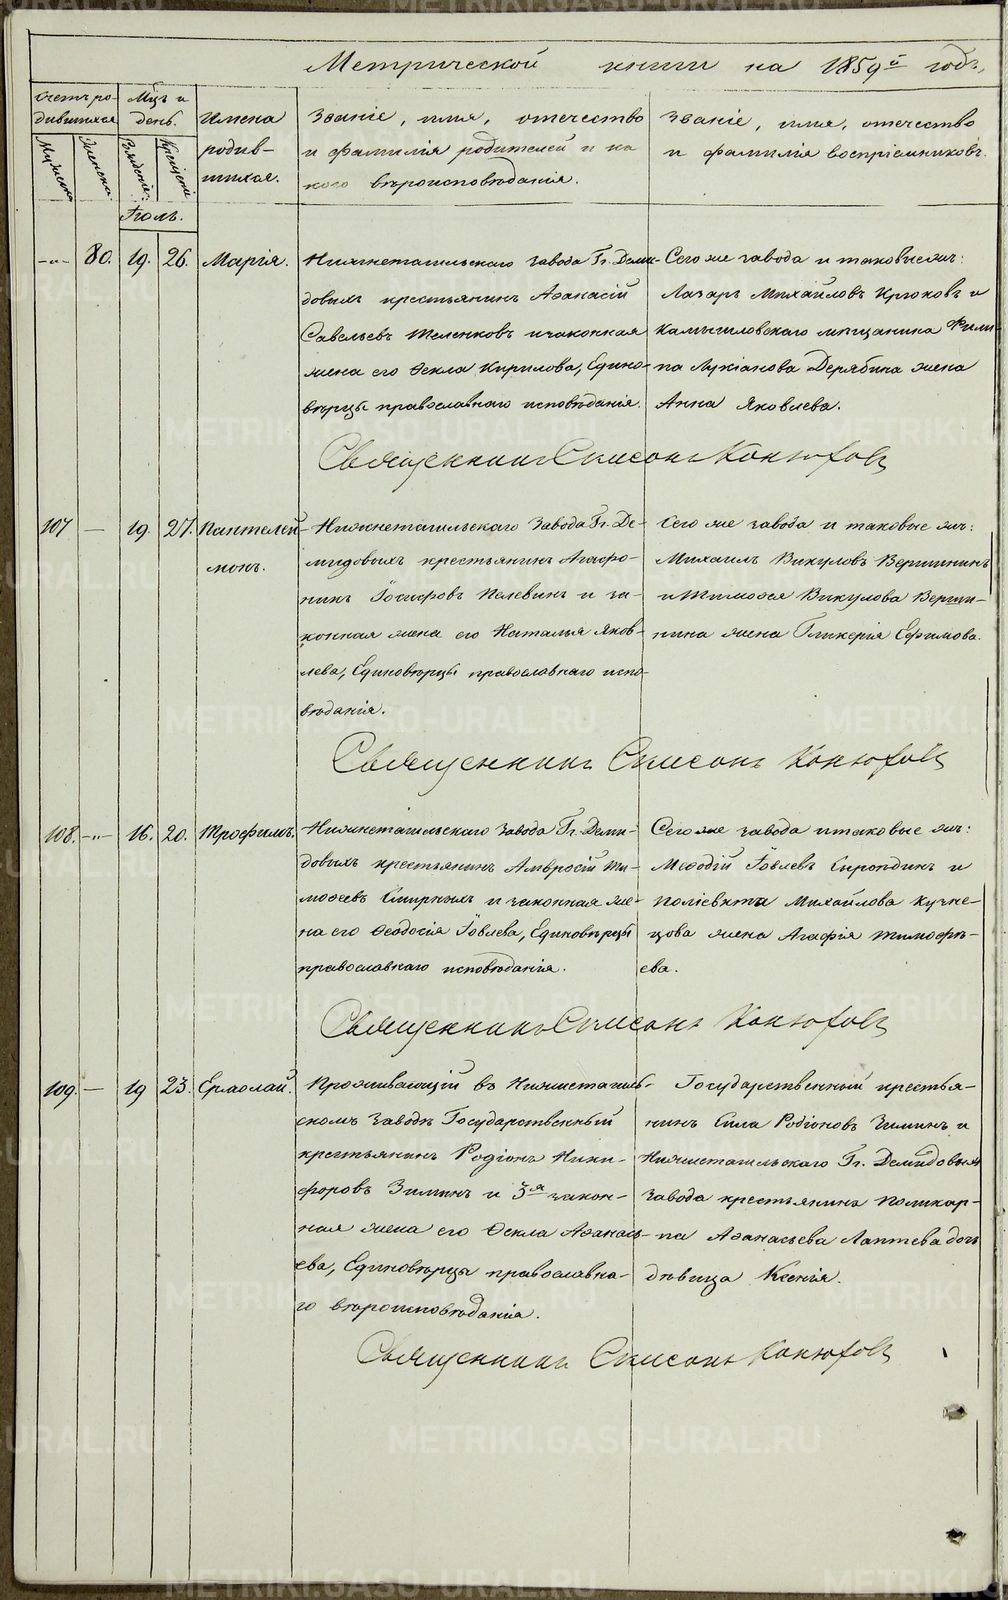 Метрической книги на 1859й годъ
Счетъ ро-
дившихся
Мужеска
Женска
Мцъ и
день.
Рожденiя
Крещенiя
Имена
родив-
шихся.
Званiе, имя, отечество
и фамилiя родителей и ка
кого вѣроисповѣданiя.
Званiе, имя, отечество
и фамилiя воспрiемниковъ.
Iюль.
-"- 80. 19. 26. Марiя.
Нижнетагильскаго завода Гг. Деми-
довыхъ крестьянинъ Аѳанасiй
Савельевъ Теленковъ и законная
жена его Ѳекла Кирилова, Едино-
вѣрцы православнаго исповѣданiя.
Сего же завода и таковые жъ:
Лазарь Михайловъ Крюковъ и
Камышловскаго мѣщанина Фили-
па Лукiанова Дерябина жена
Анна Яковлева.
Священникъ Симеонъ Конюховъ
107 — 19. 27. Пантелей-
монъ.
Нижнетагильскаго завода Гг. Де-
мидовыхъ крестьянинъ Агафо-
никъ Iосифовъ Пелевинъ и за-
конная жена его Наталья Яков-
лева, Единовѣрцы православнаго испо-
вѣданiя.
Сего же завода и таковые жъ:
Михаилъ Викуловъ Вершининъ
и Тимоѳея Викулова Верши-
нина жена Гликерiя Ефимова.
Священникъ Симеонъ Конюховъ
108. -"- 16. 20. Трофимъ.
Нижнетагильскаго завода Гг. Деми-
довыхъ крестьянинъ Амвросiй Ти-
моѳеевъ Смирныхъ и законная же-
на его Ѳеодосiя Iовлева, Единовѣрцы
православнаго исповѣданiя.
Сего же завода и таковые жъ:
Меѳодiй Iовлевъ и
Полiевкта Михайлова Кузне-
цова жена Агафiя Тимофѣ-
ева.
Священникъ Симеонъ Конюховъ
109. — 19 23. Ермолай.
Проживающiй въ Нижнетагиль-
скомъ заводѣ Государственный
крестьянинъ Родiонъ Ники-
форовъ Зиминъ и 3я закон-
ная жена его Ѳекла Аѳанась-
ева, Единовѣрцы православна-
го вѣроисповѣданiя.
Государственный крестья-
нинъ Сила Родiоновъ Зиминъ и
Нижнетагильскаго Гг. Демидовыхъ
завода крестьянина Поликар-
па Аѳанасьева Лаптева дочь
дѣвица Ксенiя.
Священникъ Симеонъ Конюховъ
METRIKI.GASO-URAL.RU